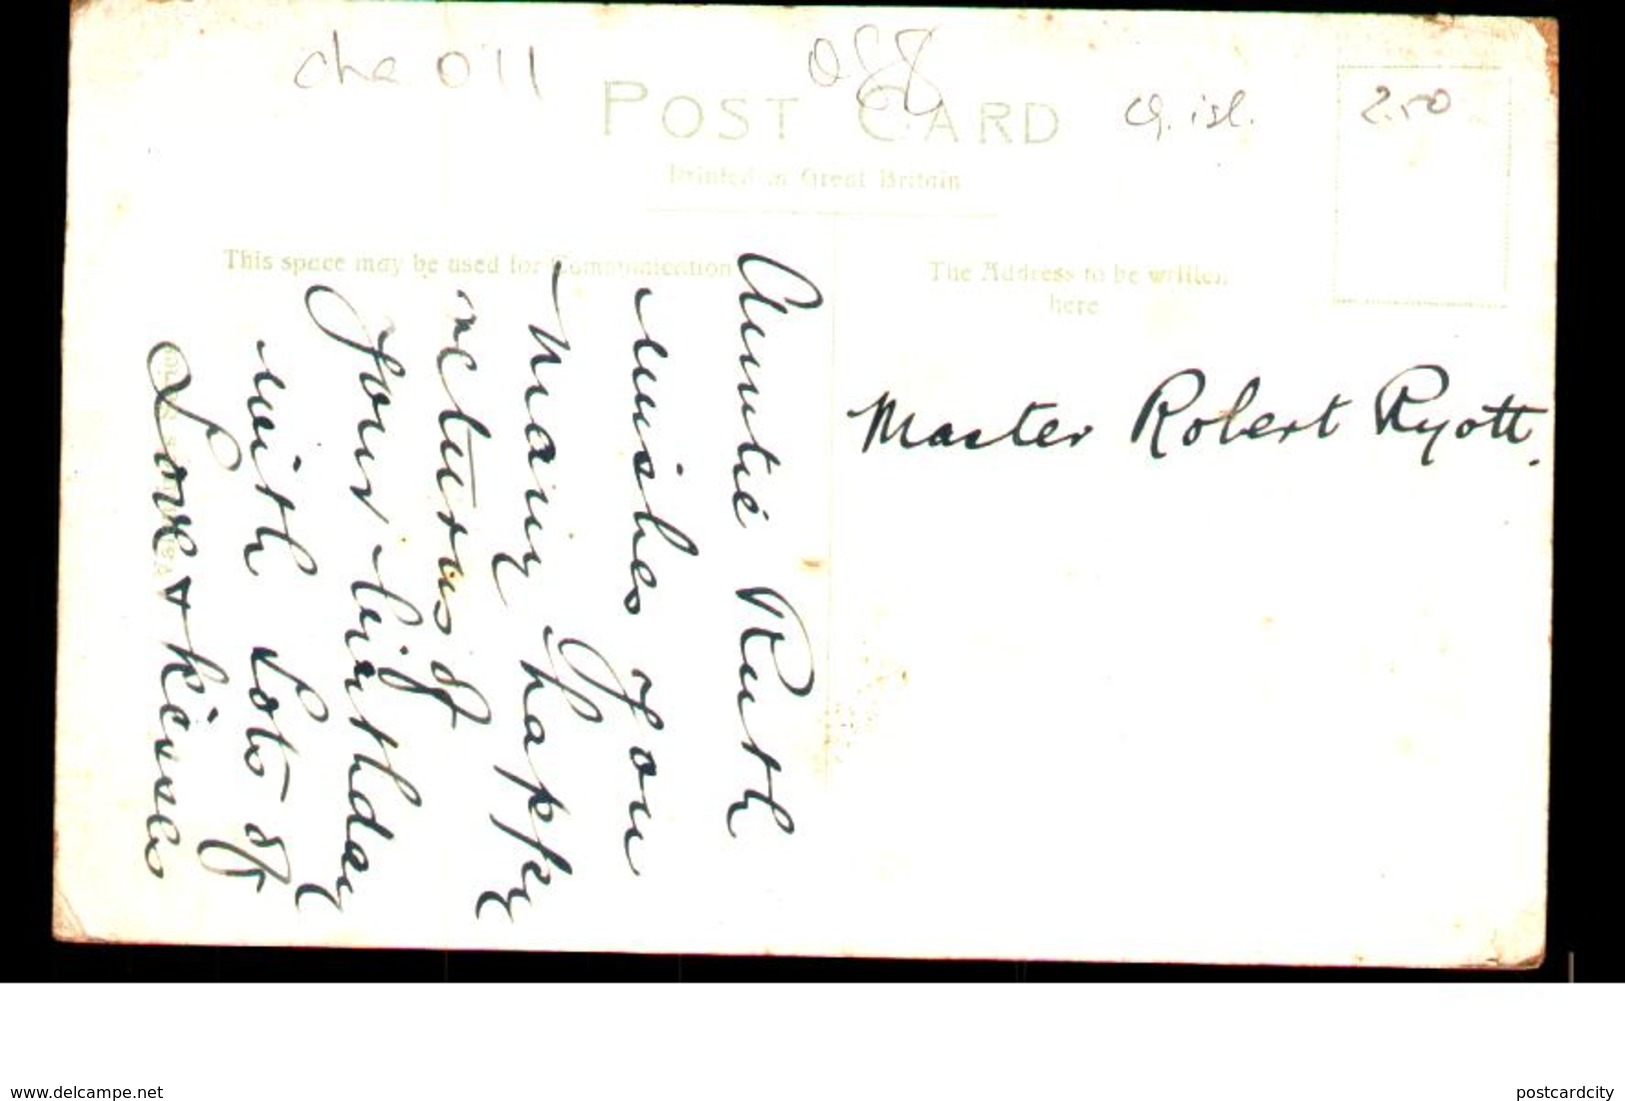 cha 011
POST CARD
ch. isl.
2.50
Printed in Great Britain
This space may be used for Communication
The Address to be written
here
Auntie Ruth
wishes you
many happy
returns of
your birthday
with Lots of
Love & kisses
Master Robert Ryott.
www.delcampe.net
postcardcity